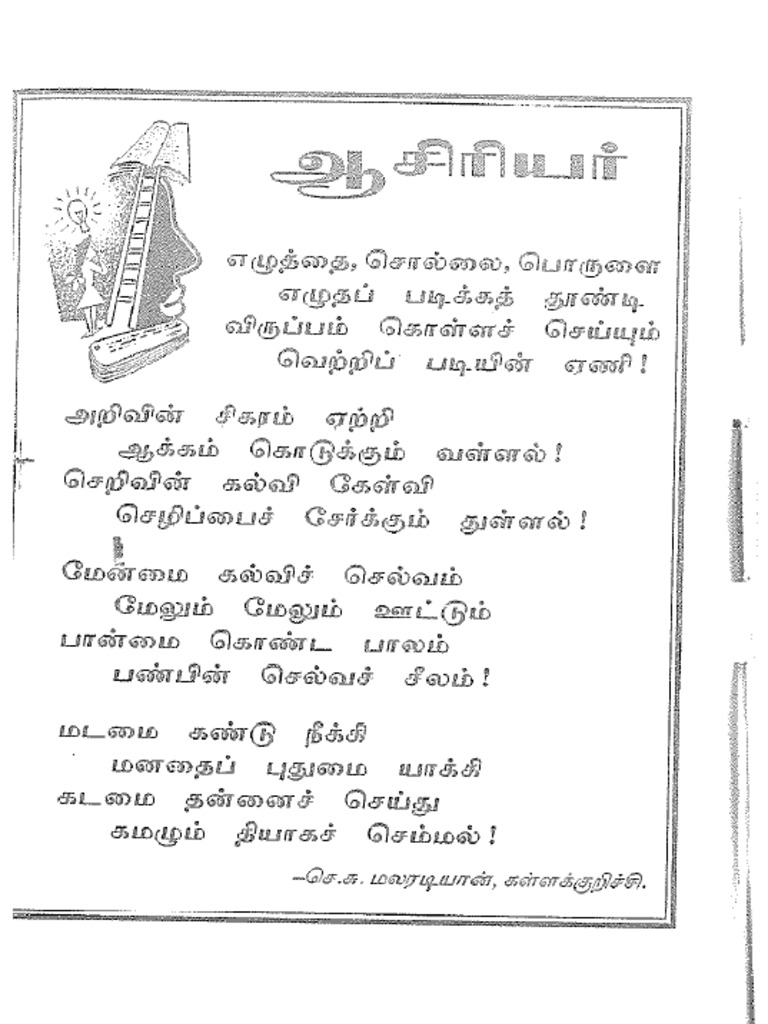 ஆசிரியர்
எழுத்தை, சொல்லை, பொருளை
எழுதப் படிக்கத் தூண்டி
விருப்பம் கொள்ளச் செய்யும்
வெற்றிப் படியின் ஏணி!
அறிவின் சிகரம் ஏற்றி
ஆக்கம் கொடுக்கும் வள்ளல்!
செறிவின் கல்வி கேள்வி
செழிப்பைச் சேர்க்கும் துள்ளல்!
மேன்மை கல்விச் செல்வம்
மேலும் மேலும் ஊட்டும்
பான்மை கொண்ட பாலம்
பண்பின் செல்வச் சீலம்!
மடமை கண்டு நீக்கி
மனதைப் புதுமை யாக்கி
கடமை தன்னைச் செய்து
கமழும் தியாகச் செம்மல்!
–செ.சு. மலரடியான், கள்ளக்குறிச்சி.